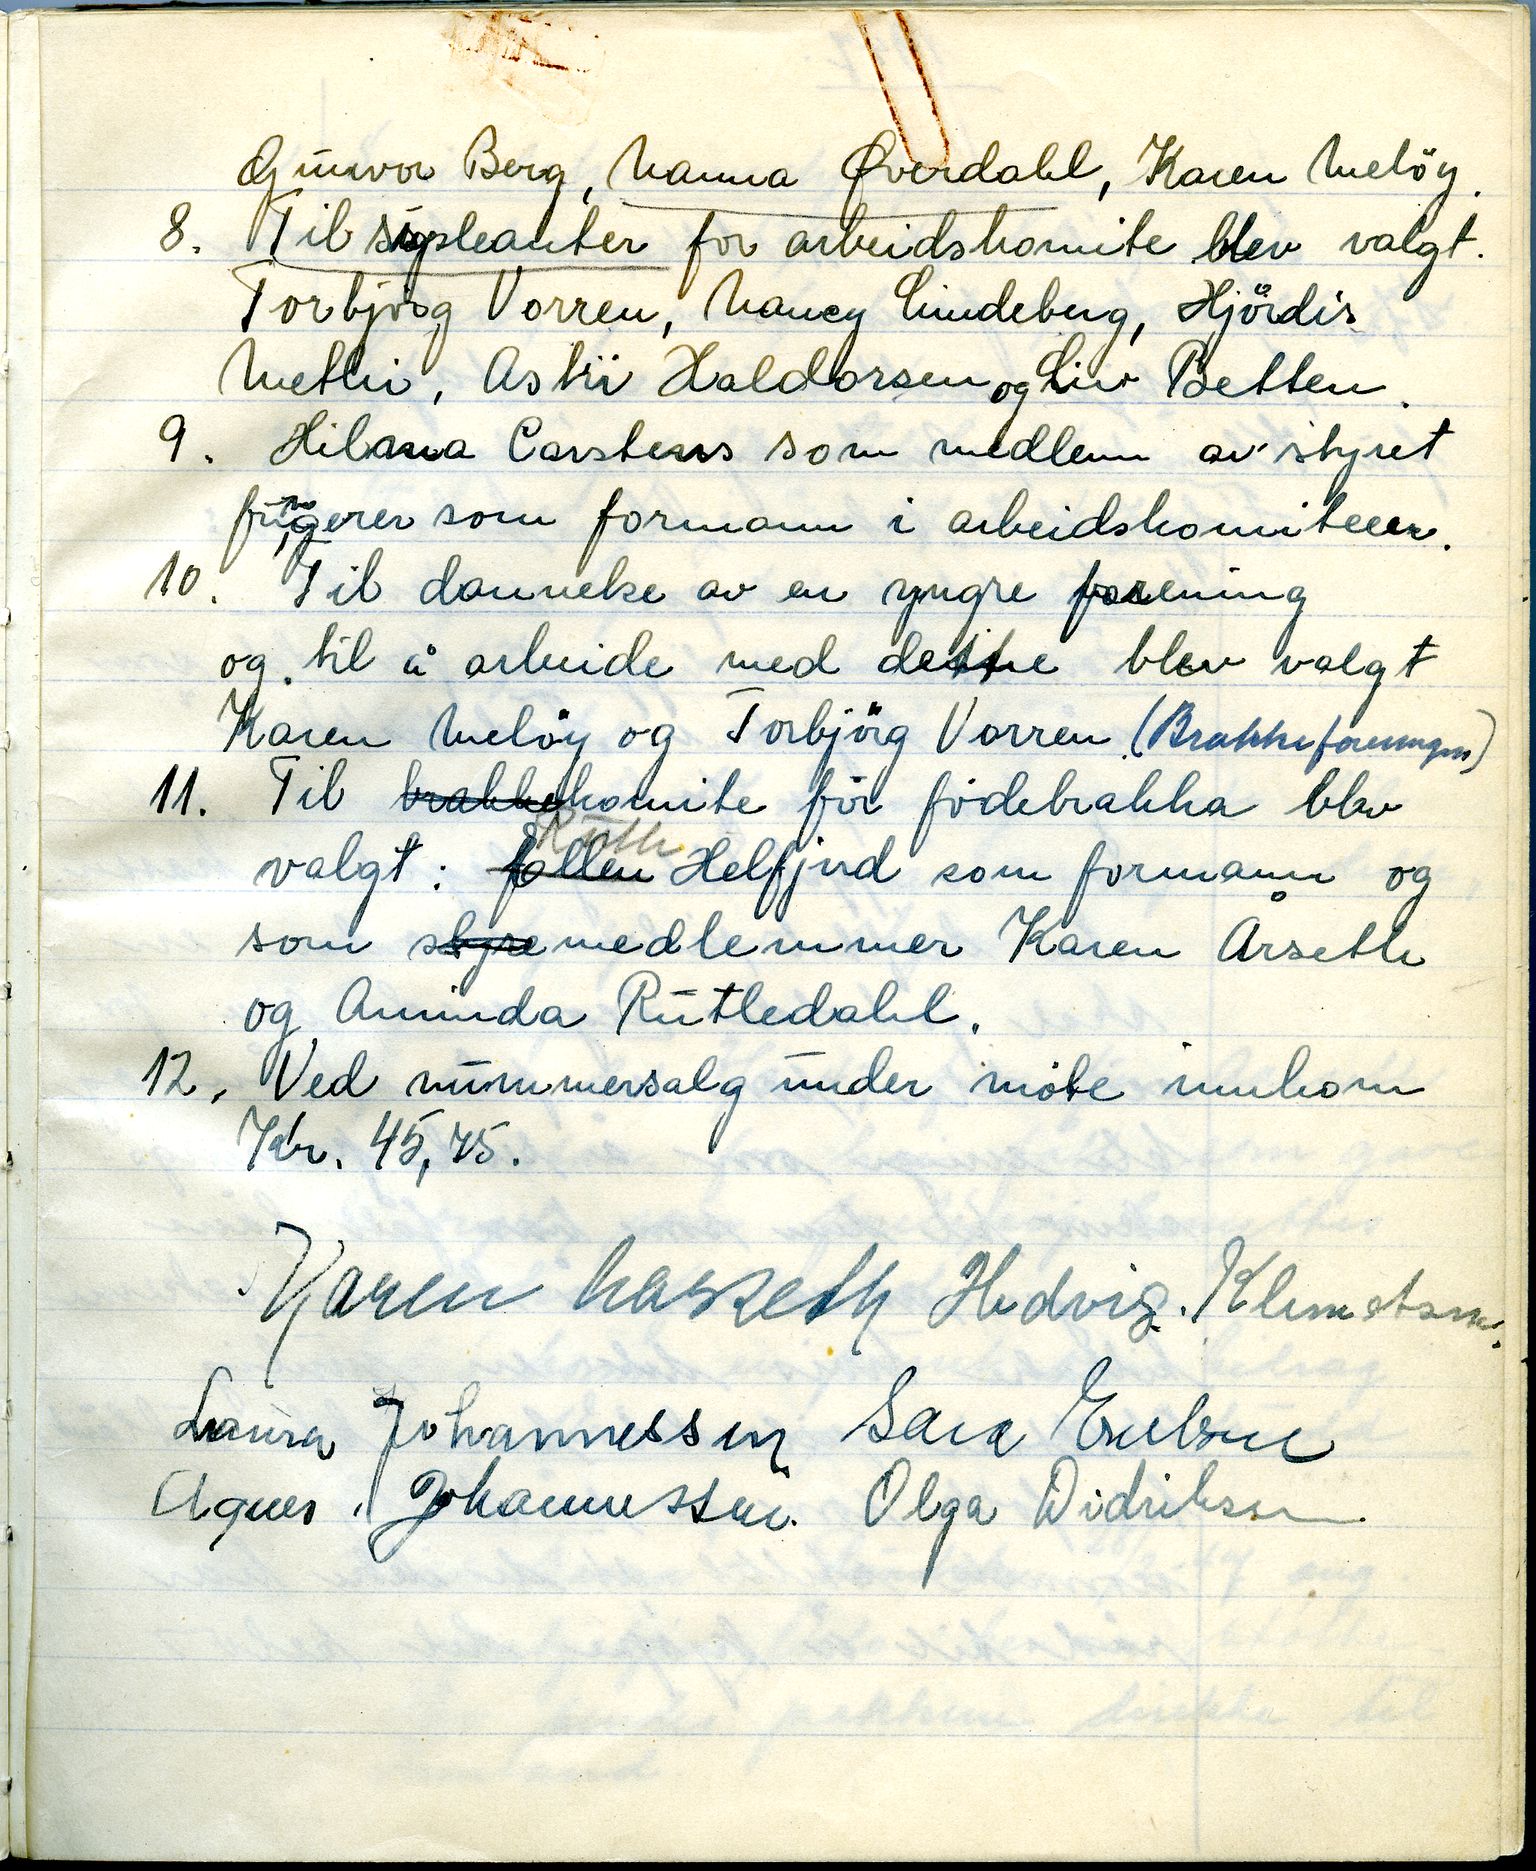 Gunvor Berg, Nanna Øverdahl, Karen Melöy.
8. Til supleanter for arbeidskomite blev valgt.
Torbjörg Vorren, Nancy Lindeberg, Hjördis
Methi, Astri Haldorsen og Liv Betten.
9. Hilana Carstens som medlem av styret
fungerer som formann i arbeidskomiteen.
10. Til dannelse av en yngre forening
og til å arbeide med dette blev valgt
Karen Melöy og Torbjörg Vorren (Brakkeforeningen)
11. Til brakkekomite för födebrakka blev
valgt: Ruth Helfjord som formann og
som styremedlemmer Karen Årseth
og Aminda Rutledahl.
12. Ved nummersalg under möte innkom
Kr. 45,75.
Karen Aarseth Hedvig Klemetsen.
Laura Johannessen Sara
Agnes Johannessen. Olga Didriksen